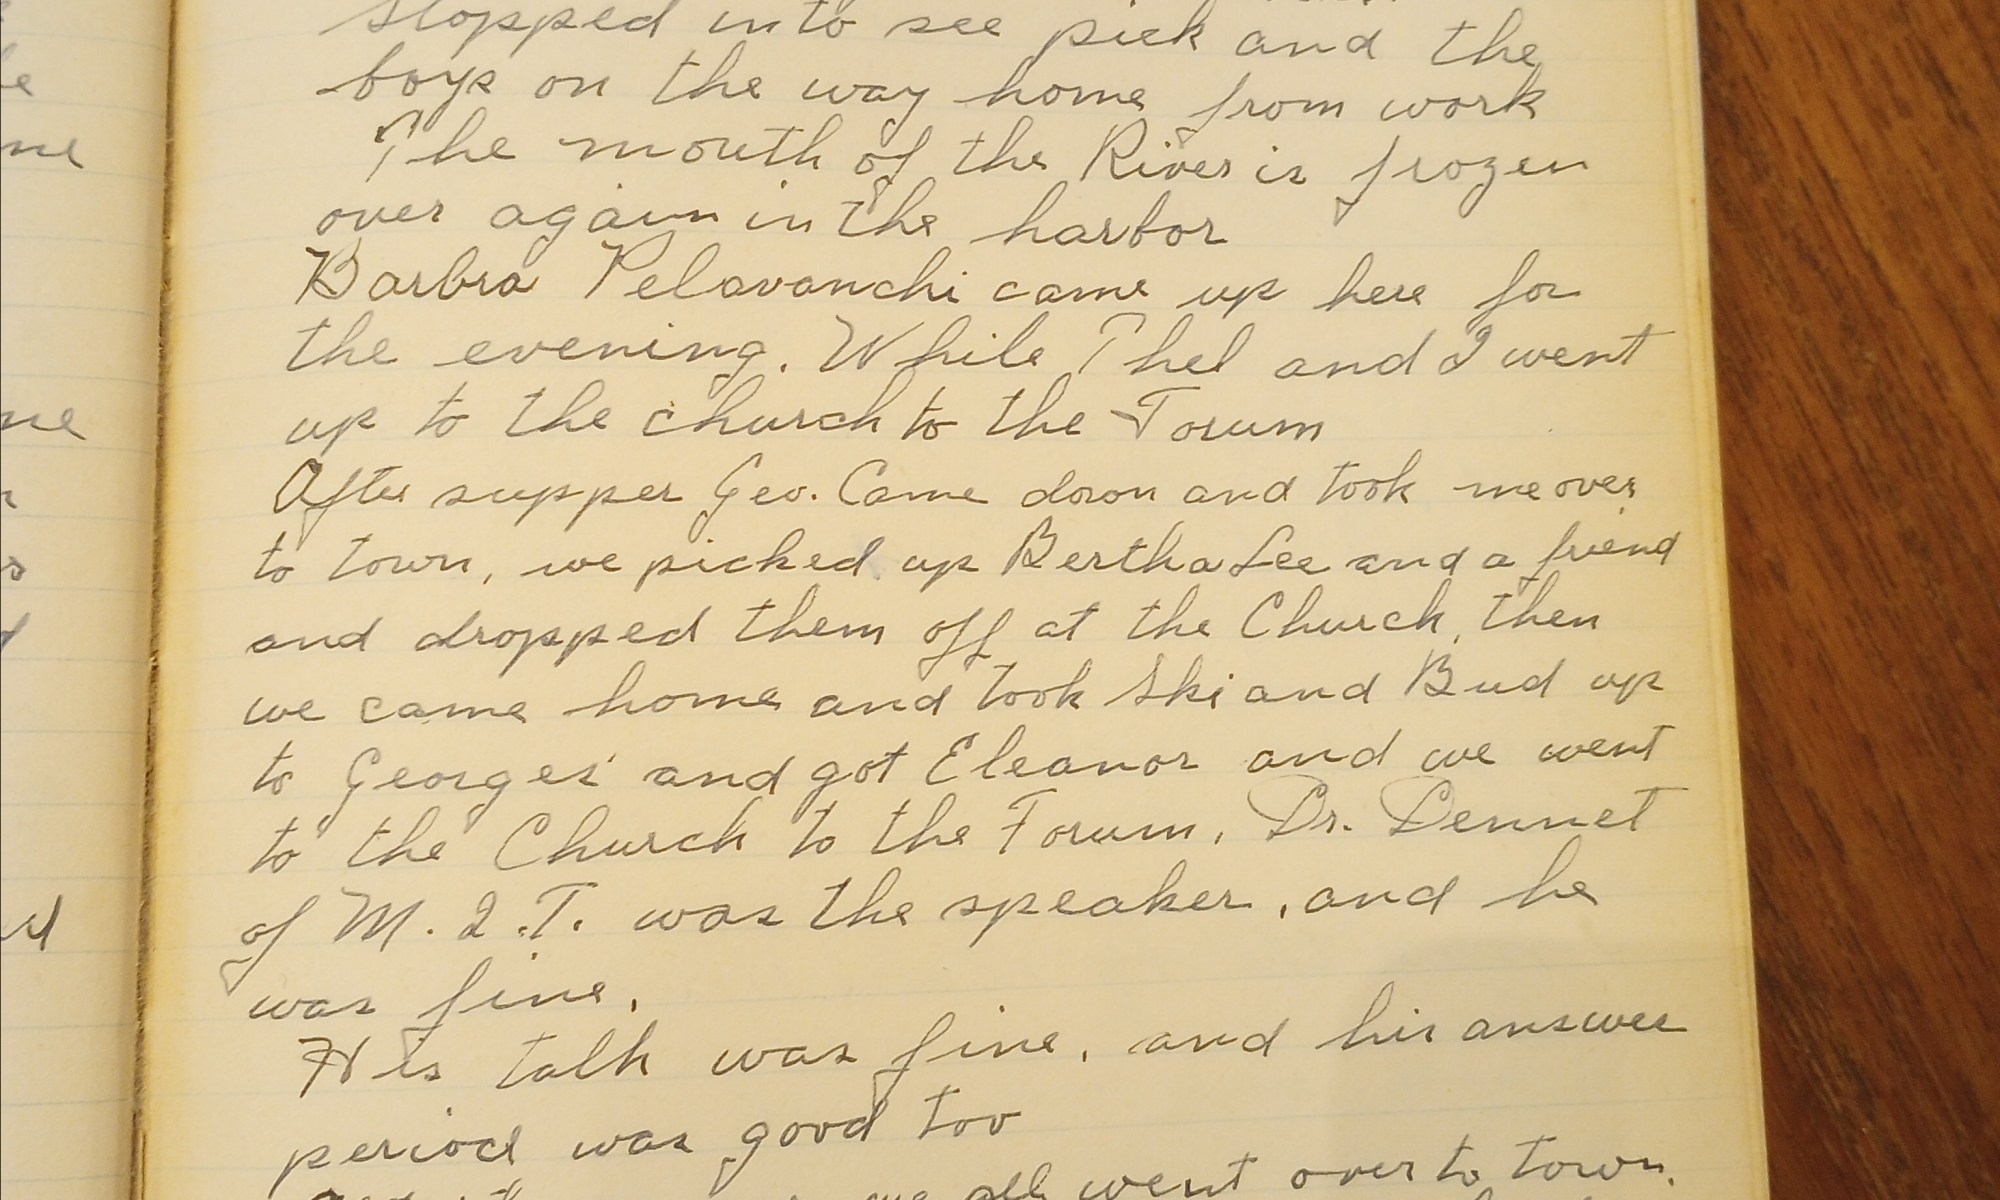 stopped in to see pick and the
boys on the way home from work
The mouth of the River is frozen
over again in the harbor
Barbra Pelavanchi came up here for
the evening. While Thel and I went
up to the church to the Forum
After supper Geo. Came down and took me over
to town, we picked up Bertha Lee and a friend
and dropped them off at the Church, then
we came home and took Ski and Bud up
to Georges' and got Eleanor and we went
to the Church to the Forum, Dr. Dennet
of M.I.T. was the speaker, and he
was fine.
His talk was fine, and his answer
period was good too
we all went over to town.